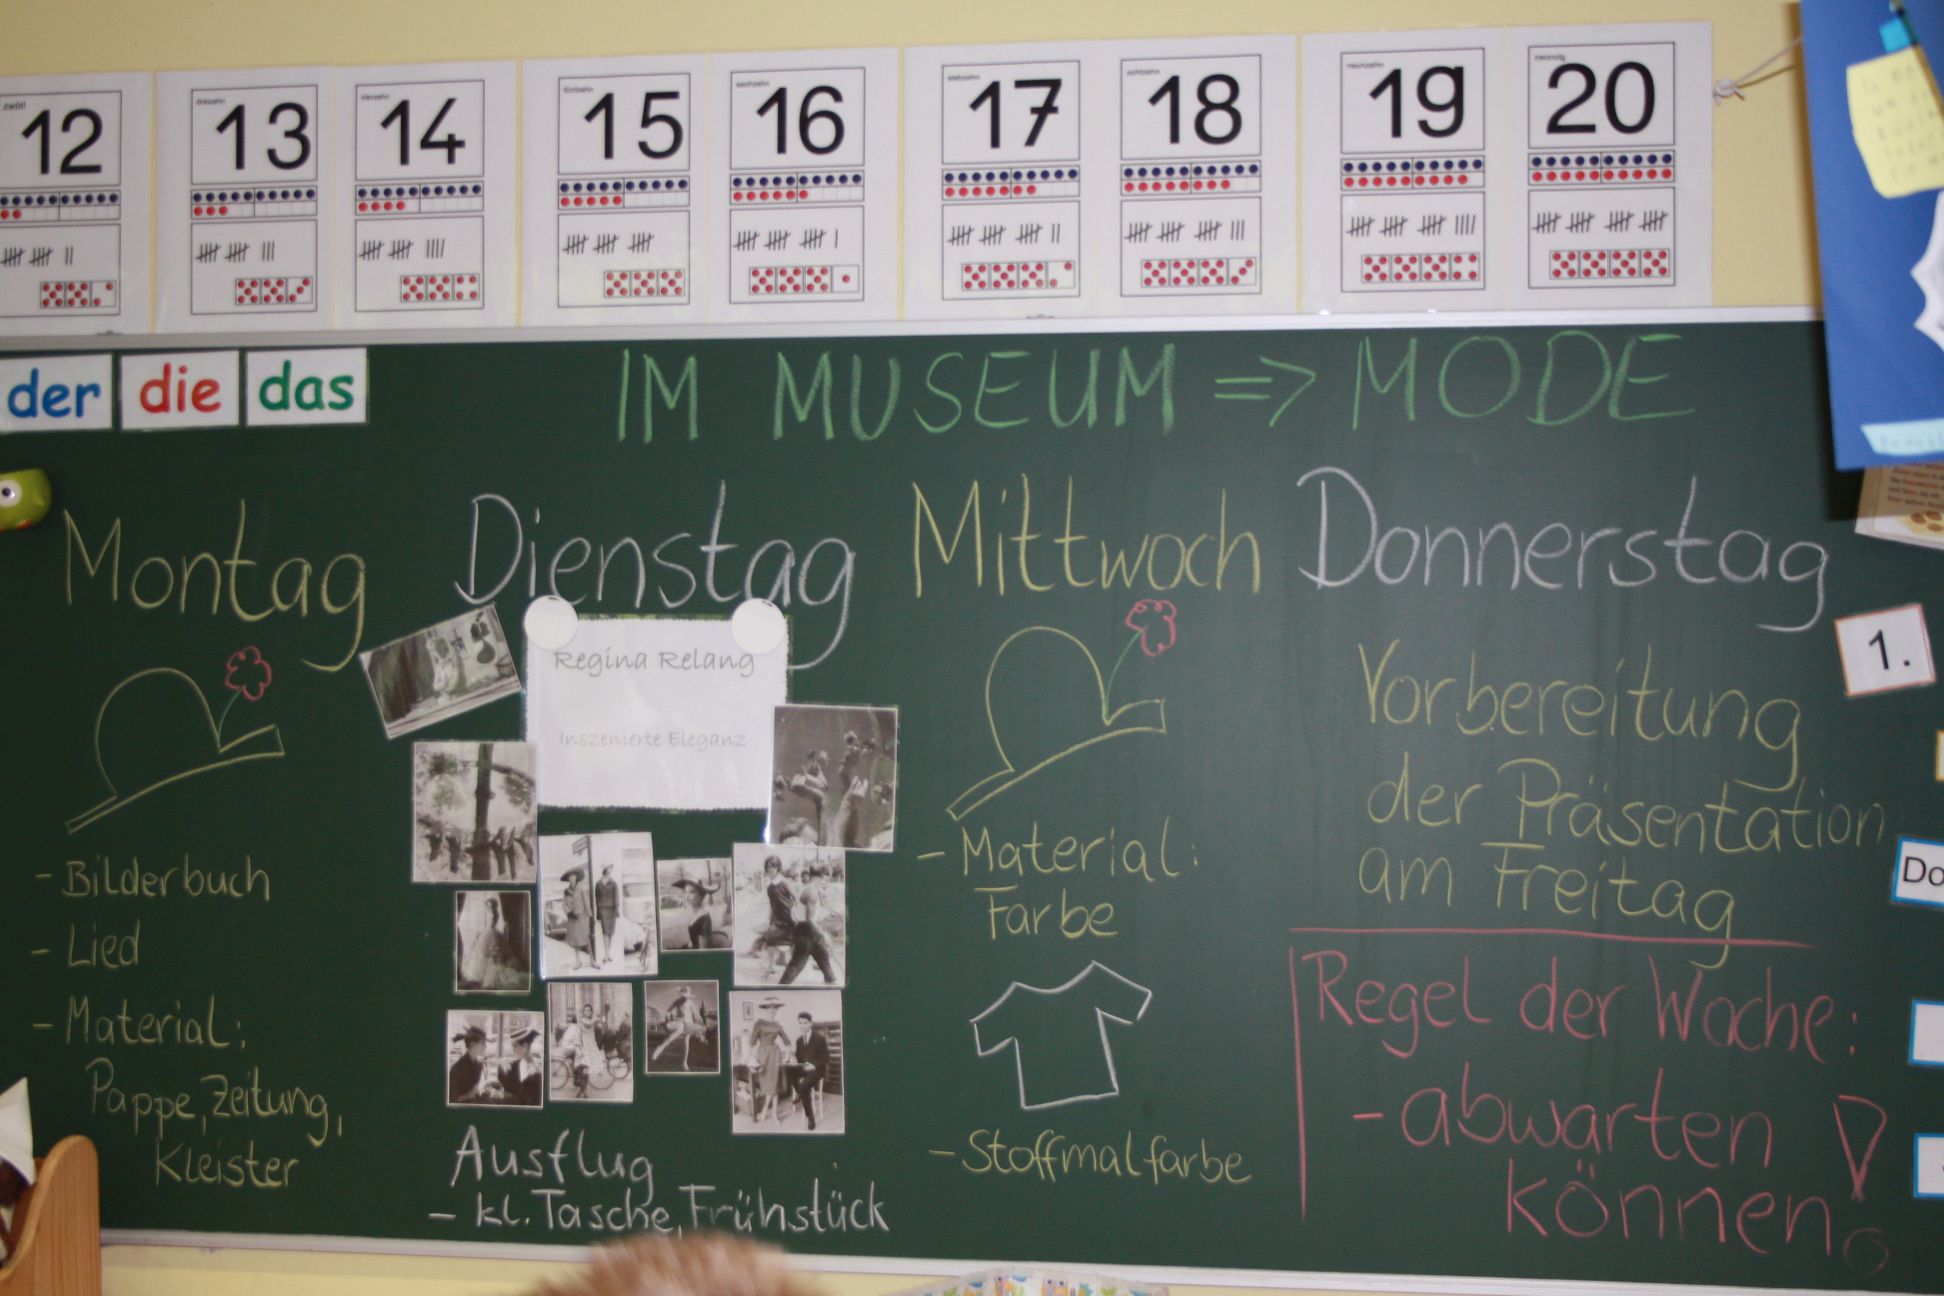 zwölf
dreizehn
vierzehn
fünfzehn
sechzehn
siebzehn
achtzehn
neunzehn
zwanzig
12
13
14
15
16
17
18
19
20
der die das
IM MUSEUM => MODE
Montag
- Bilderbuch
- Lied
- Material:
Pappe, Zeitung,
Kleister
Dienstag
Regina Relang
Inszenierte Eleganz
Ausflug
- kl. Tasche, Frühstück
Mittwoch
- Material:
Farbe
- Stoffmalfarbe
Donnerstag
Vorbereitung
der Präsentation
am Freitag
Regel der Woche:
- abwarten
können!
1.
Do